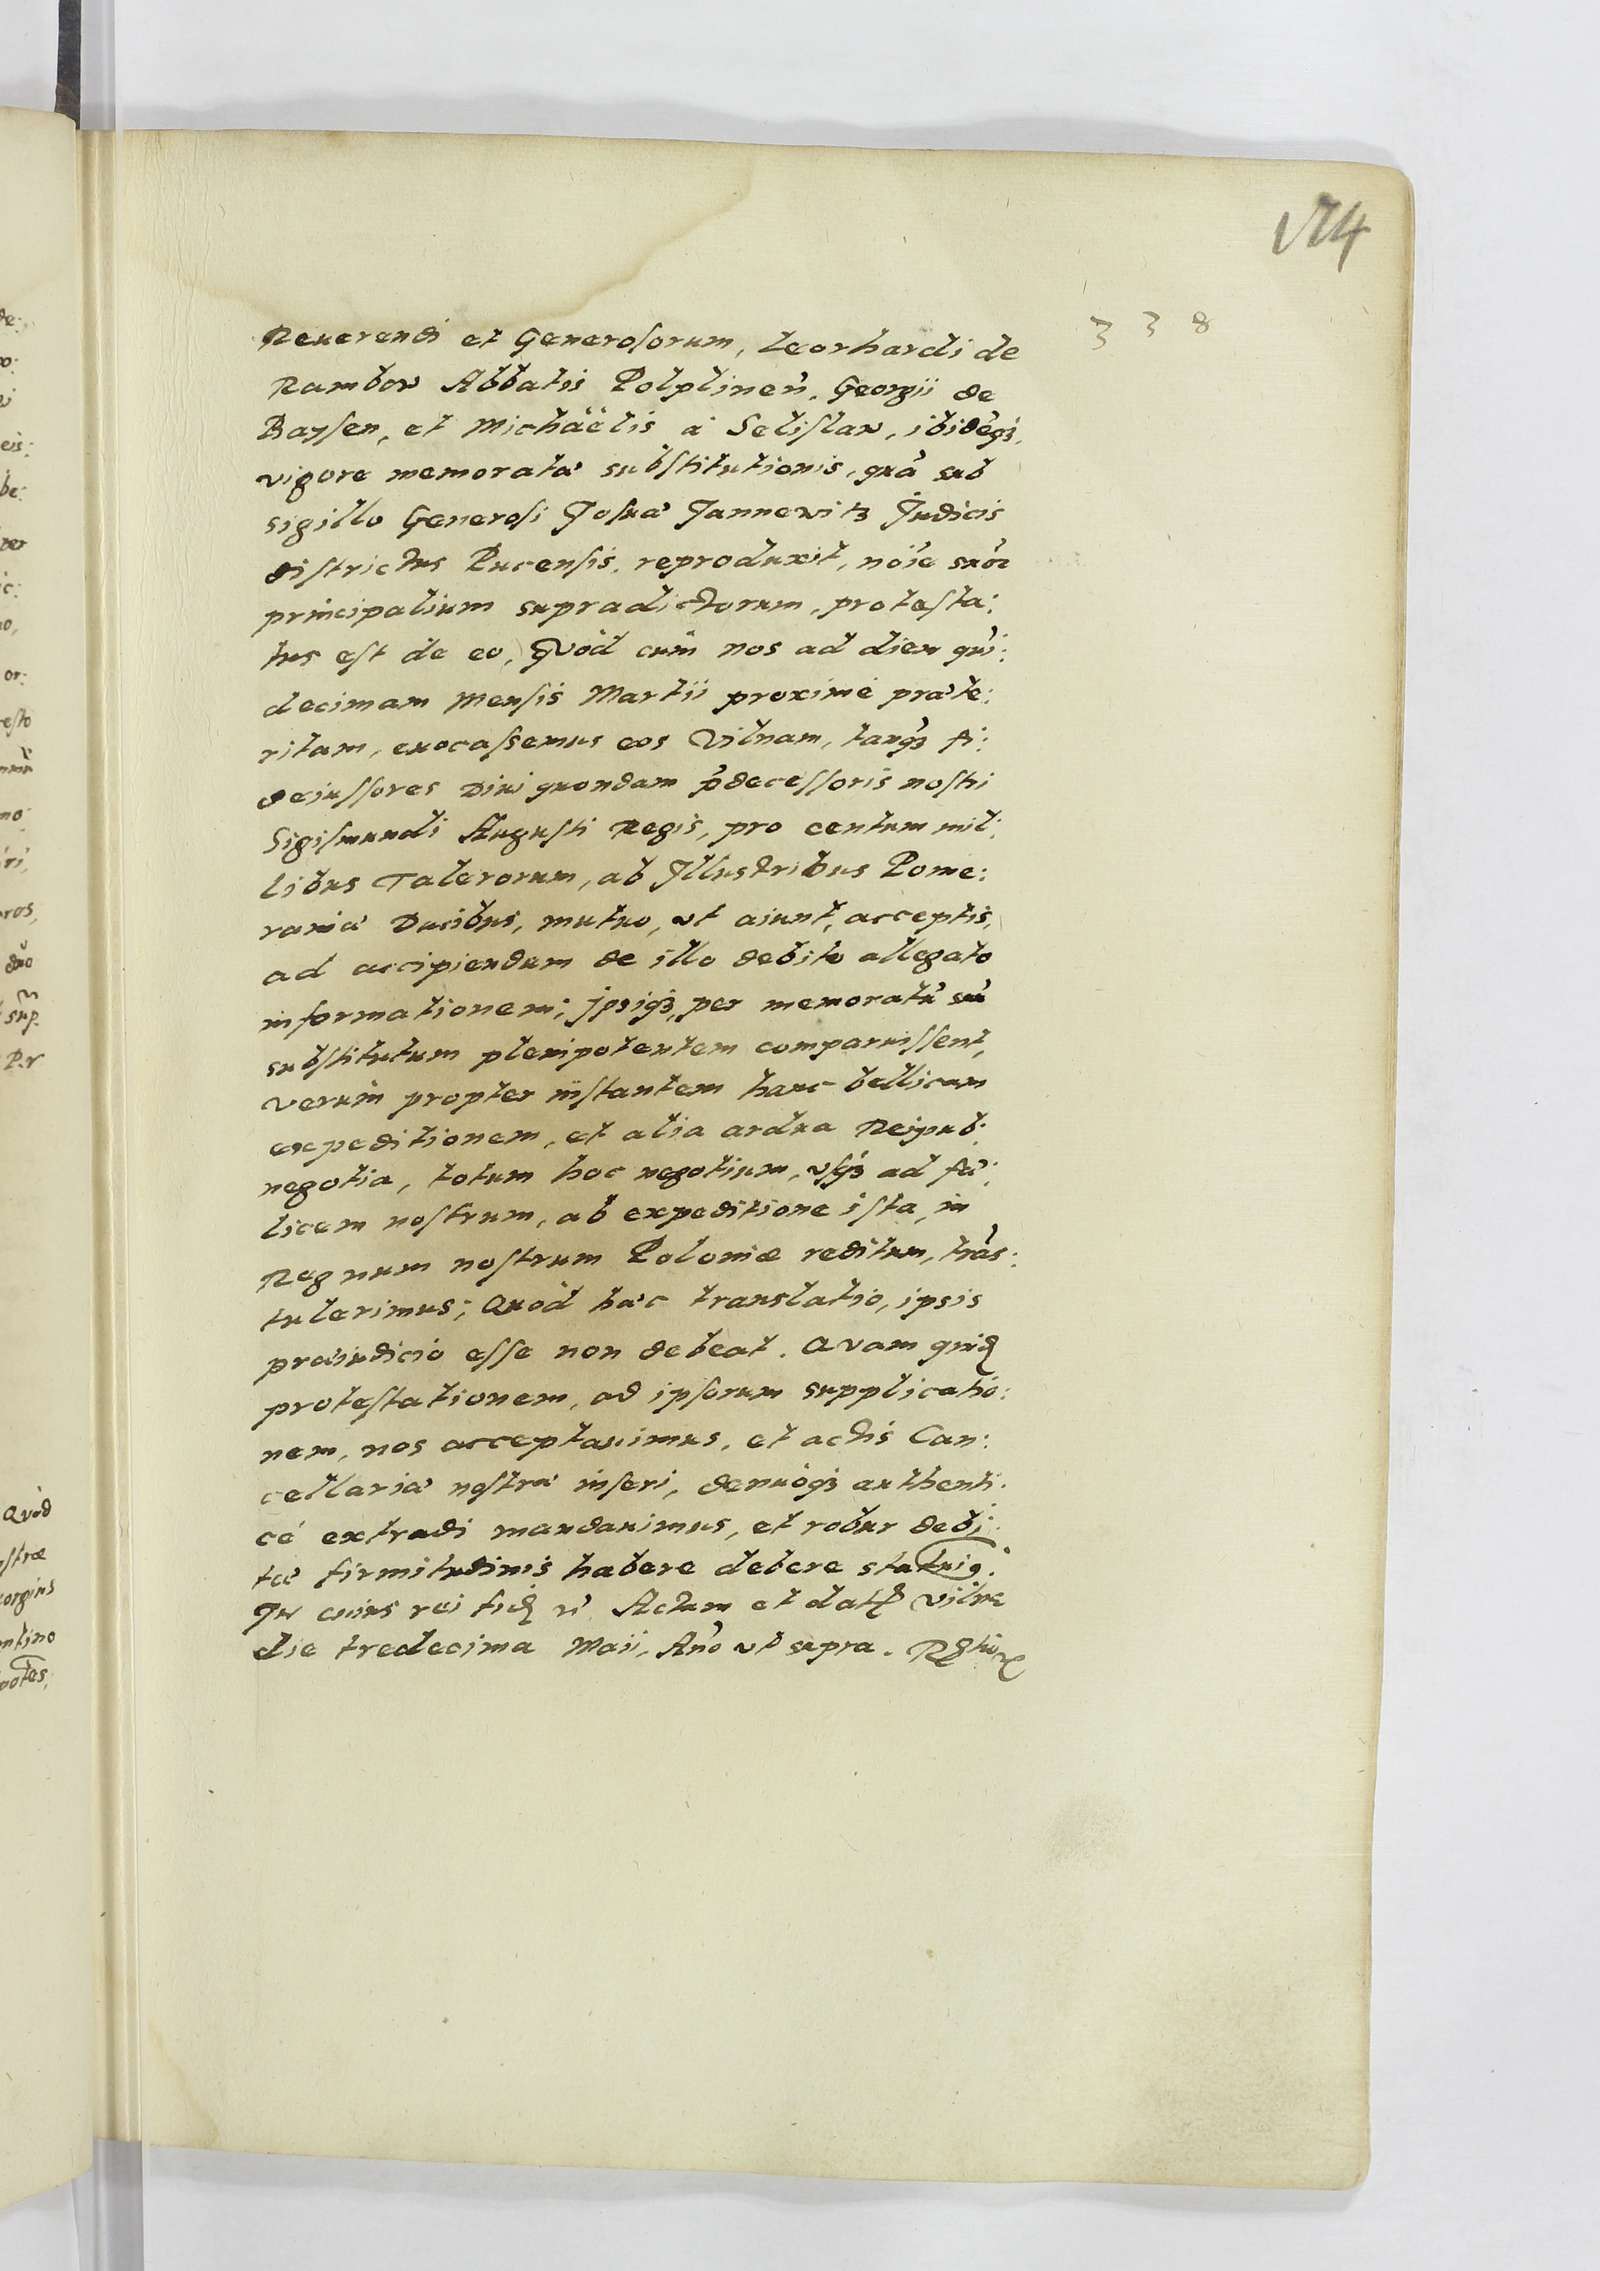 174
338
Reuerendi et Generosorum, Leorhardi de
Rambow Abbatis Polplinen̄. Georgii de
Baysen, et Michaëlis à Selislaw, ibidēq3,
vigore memoratæ substitutionis, quā sub
sigillo Generosi Josuæ Jannewitz Judicis
districtus Pucensis, reproduxit, nōie suor̄
principalium supradictorum, protesta:
tus est de eo, Quòd cùm nos ad diem qui:
decimam Mensis Martii proximè præte:
ritam, euocassemus eos Vilnam, tanq3 fi:
deiussores Diui quondam p̄decessoris nostri
Sigismundi Augusti Regis, pro centum mil:
libus Talerorum, ab Illustribus Pome:
raniæ Ducibus, mutuo, vt aiunt, acceptis,
ad accipiendam de illo debito allegato
informationem; ipsiq3, per memoratū suū
substitutum plenipotentem comparuissent,
verùm propter instantem hanc bellicam
expeditionem, et alia ardua Reipub:
negotia, totum hoc negotium, vsq3 ad fæ:
licem nostrum, ab expeditione ista, in
Regnum nostrum Poloniæ reditum, trās:
tulerimus; Quòd hæc translatio, ipsis
præiudicio esse non debeat. Quam quid̄
protestationem, ad ipsorum supplicatio:
nem, nos acceptauimus, et actis Can:
cellariæ nostræ inseri, denuòq3 authenti:
cè extradi mandauimus, et robur debi:
tæ firmitudinis habere debere statuim9.
In cuius rei fid̄ n̄. Actum et dat̄ Vilnæ
die tredecima Maii, Ano vt supra.